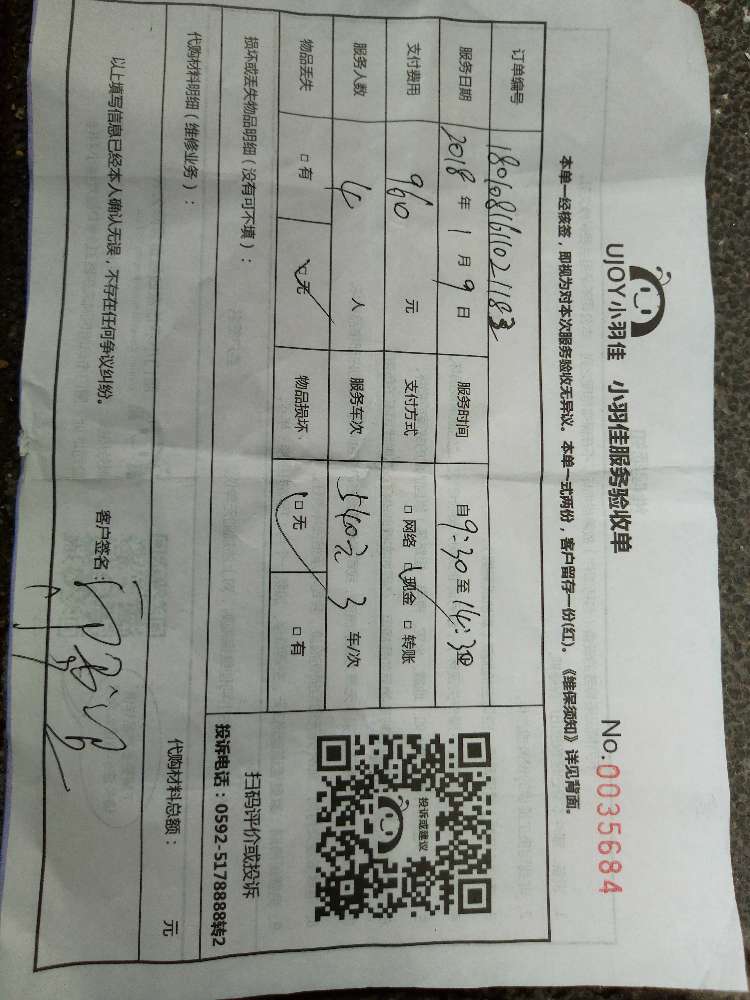 UJOY小羽佳 小羽佳服务验收单 No.0035684
本单一经核签，即视为对本次服务验收无异议。本单一式两份，客户留存一份(红)。《维保须知》详见背面。
订单编号
服务日期 2018 年 1 月 9 日 服务时间 自 9:30 至 14:30
支付费用 960 元 支付方式 □ 网络 □ 现金 □ 转账
服务人数 4 人 服务车次 540元 3 车/次
物品丢失 □ 有 □ 无 物品损坏 □ 无 □ 有
投诉或建议
扫码评价或投诉
投诉电话：0592-5178888转2
损坏或丢失物品明细（没有可不填）：
代购材料明细（维修业务）： 代购材料总额： 元
以上填写信息已经本人确认无误，不存在任何争议纠纷。 客户签名：